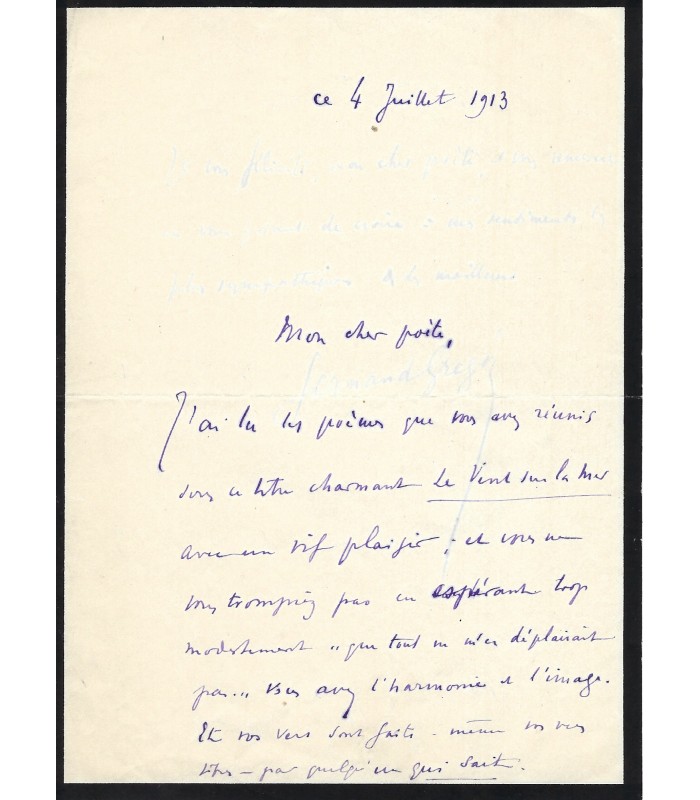 ce 4 Juillet 1913
Je vous félicite mon cher poète,
sentiments les
plus sympathiques & les meilleurs
Mon cher poète,
Fernand Gregh
J'ai lu les poèmes que vous avez réunis
sous ce titre charmant Le Vent sur la Mer
avec un vif plaisir ; et vous ne
vous trompiez pas en espérant trop
modestement "que tout ne m'en déplairait
pas". Vous avez l'harmonie et l'image.
Et vos vers sont faits - même vos vers
libres - par quelqu'un qui sait.